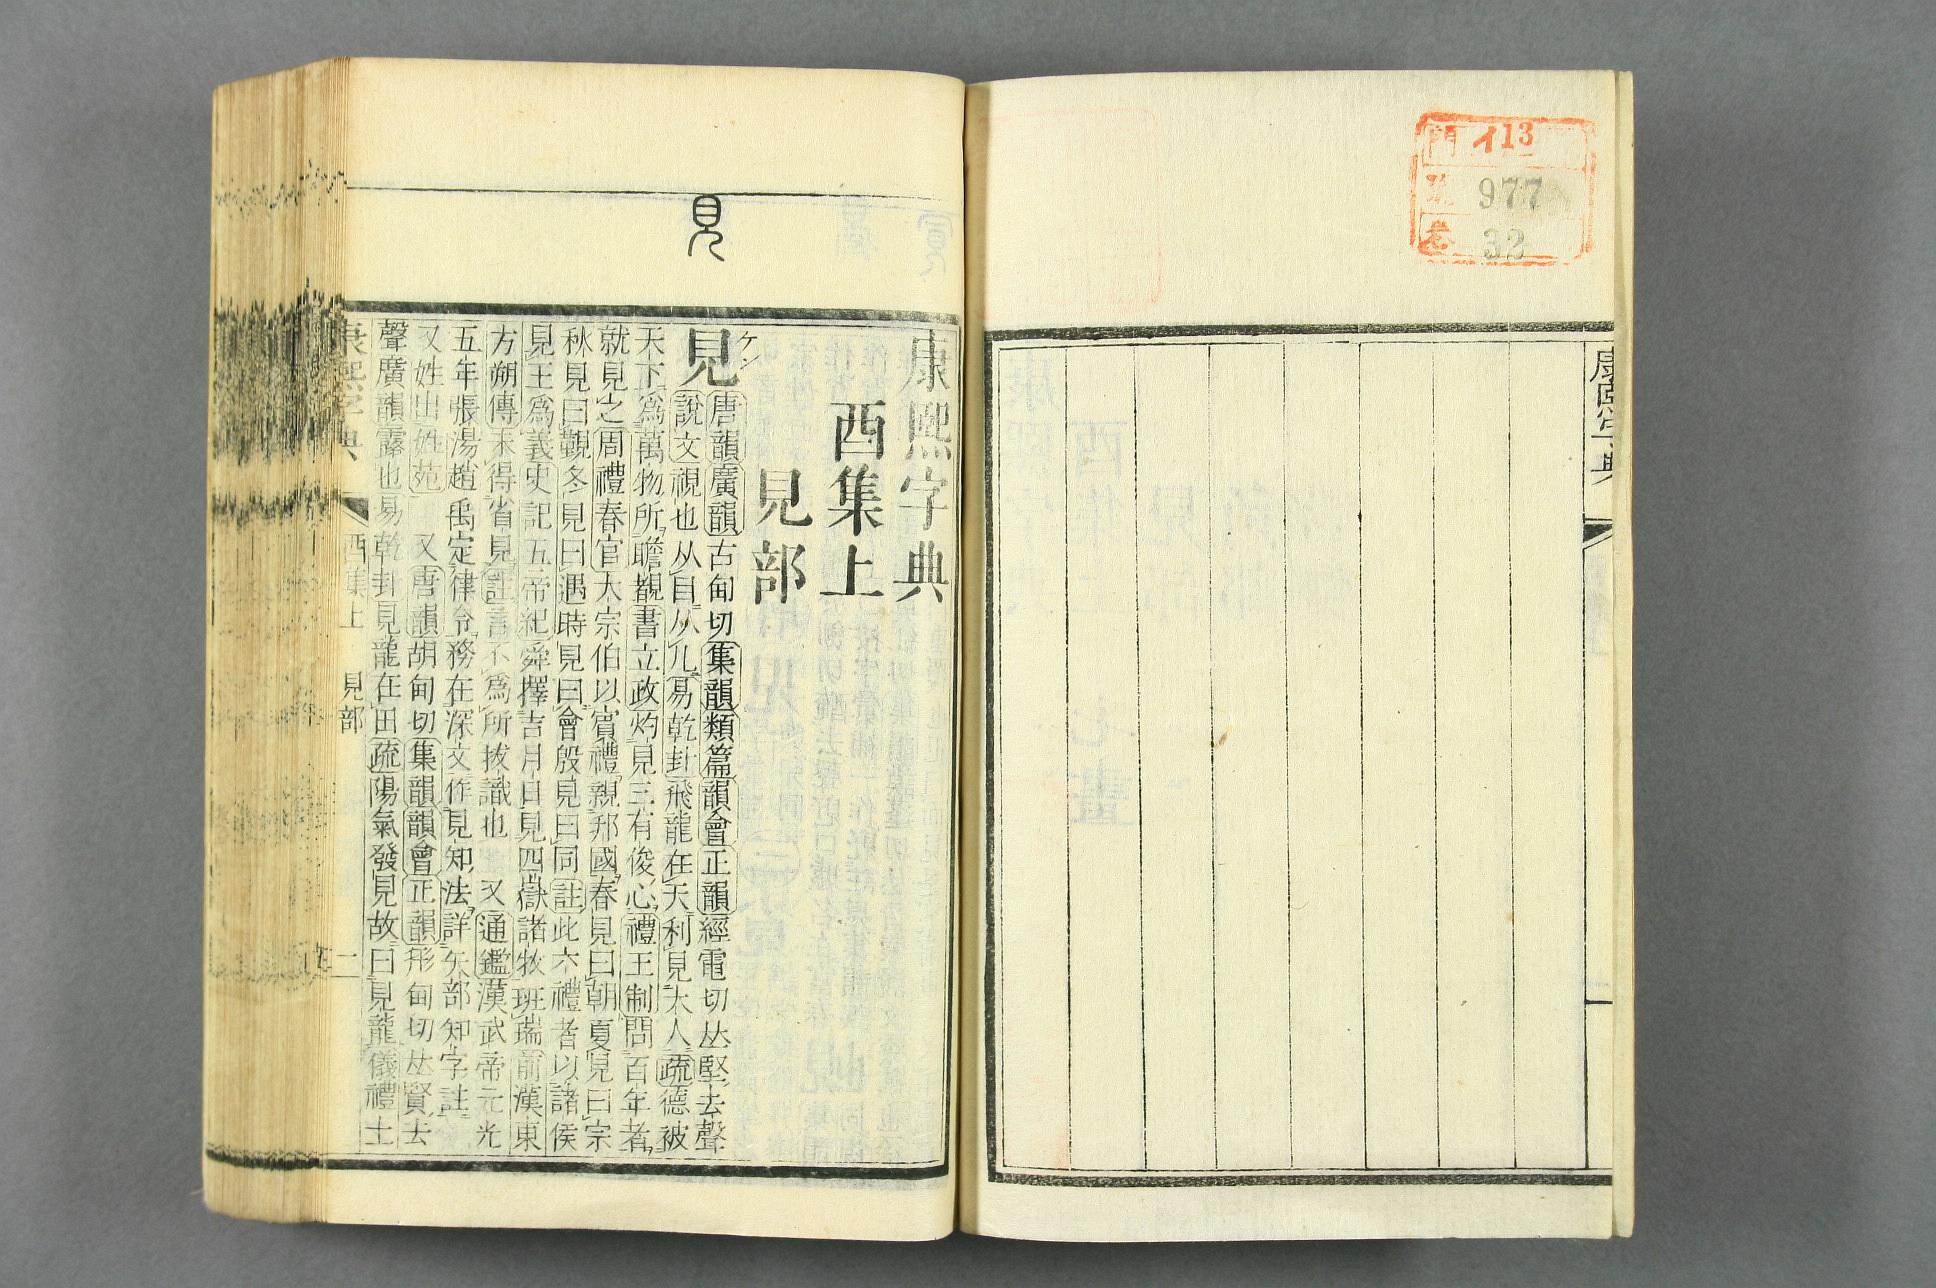 門 イ13
號 977
卷 32
康熙字典
一
康熙字典
酉集上
見部
見
ケン
見
唐韻廣韻古甸切集韻類篇韻會正韻經電切𠀤堅去聲
說文視也从目从儿易乾卦飛龍在天利見大人疏德被
天下爲萬物所瞻覩書立政灼見三有俊心禮王制問百年者
就見之周禮春官大宗伯以賓禮親邦國春見曰朝夏見曰宗
秋見曰覲冬見曰遇時見曰會殷見曰同註此六禮者以諸侯
見王爲義史記五帝紀舜擇吉月日見四嶽諸牧班瑞前漢東
方朔傳未得省見註言不爲所拔識也 又通鑑漢武帝元光
五年張湯趙禹定律令務在深文作見知法詳矢部知字註
又姓出姓苑 又唐韻胡甸切集韻韻會正韻形甸切𠀤賢去
聲廣韻露也易乾卦見龍在田疏陽氣發見故曰見龍儀禮士
康熙字典
酉集上 見部
二